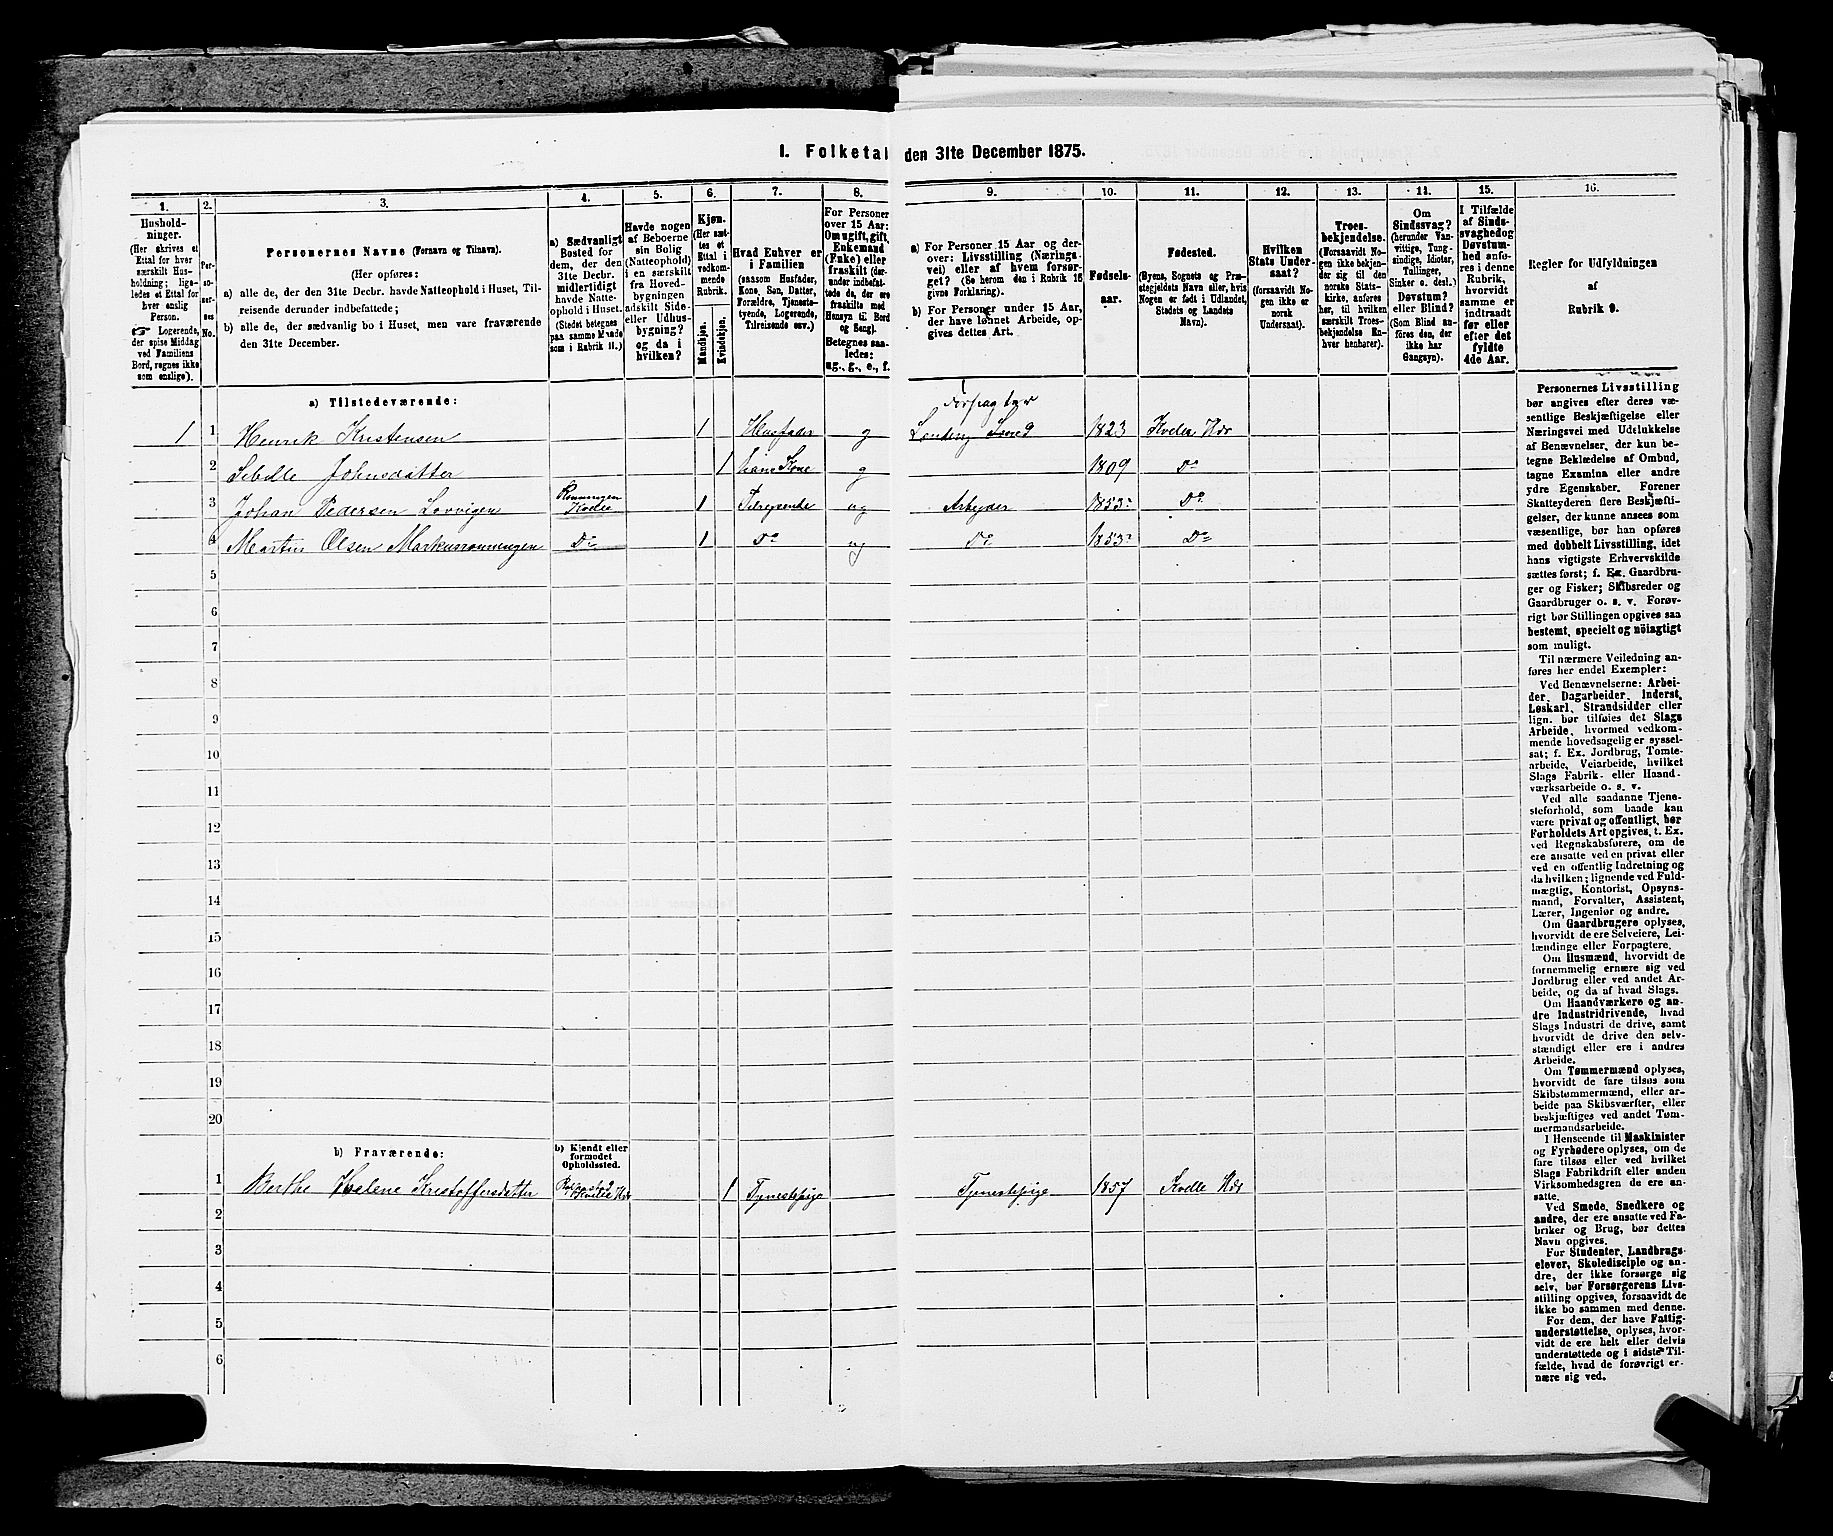 I. Folketal den 31te December 1875.
1. 2. 3. 4. 5. 6. 7. 8. 9. 10. 11. 12. 13. 14. 15. 16.
Hushold-
ninger.
(Her skrives et
Ettal for hver
særskilt Hus-
holdning; liga-
ledes et Ettal for
hver enslig
Person.
☞ Logerende,
der spise Middag
ved Familiens
Bord, regnes ikke
som enslige).
Per-
so-
ner-
nes
No.
Personernes Navne (Fornavn og Tilnavn).
(Her opføres:
a) alle de, der den 31te Decbr. havde Natteophold i Huset, Til-
reisende derunder indbefattede;
b) alle de, der sædvanlig bo i Huset, men vare fraværende
den 31te December.
a) Sædvanligt
Bosted for
dem, der den
31te Decbr.
midlertidigt
havde Natte-
ophold i Huset.
(Stedet betegnes
paa samme Maade
som i Rubrik 11.)
Havde nogen
af Beboerne
sin Bolig
(Natteophold)
i en særskilt
fra Hoved-
bygningen
adskilt Side-
eller Udhus-
bygning?
og da i
hvilken?
Kjøn.
(Her sæt-
tes et
Ettal i
vedkom-
mende
Rubrik.
Mandkjøn.
Kvindekjøn.
Hvad Enhver er
i Familien
(saasom Husfader,
Kone, Søn, Datter,
Forældre, Tjeneste-
tyende, Logerende,
Tilreisende osv.)
For Personer
over 15 Aar:
Om ugift, gift,
Enkemand
(Enke) eller
fraskilt (der-
under indbefat-
tede de, der ere
fraskilte med
Hensyn til Bord
og Seng).
Betegnes saa-
ledes:
ug., g., e., f.
a) For Personer 15 Aar og der-
over: Livsstilling (Nærings-
vei) eller af hvem forsør-
get? (Se herom den i Rubrik 16
givne Forklaring).
b) For Personer under 15 Aar,
der have lønnet Arbeide, op-
gives dettes Art.
Fødsels-
aar.
Fødested.
(Byens, Sognets og Præ-
stegjeldets Navn eller, hvis
Nogen er født i Udlandet,
Stedets og Landets
Navn).
Hvilken
Stats Under-
saat?
(forsaavidt No-
gen ikke er
norsk
Undersaat).
Troes-
bekjendelse.
(Forsaavidt No-
gen ikke bekjen-
der sig til den
norske Stats-
kirke, anføres
her, til hvilken
særskilt Troes-
bekjendelse En-
hver henhører).
Om
Sindssvag?
(herunder Van-
vittige, Tung-
sindige, Idioter,
Tullinger,
Sinker o. desl.)
Døvstum?
eller Blind?
(Som Blind an-
føres den, der
ikke har
Gangsyn).
I Tilfælde
af Sinds-
svaghed og
Døvstum-
hed anfø-
res i denne
Rubrik,
hvorvidt
samme er
indtraadt
før eller
efter det
fyldte
4de Aar.
Regler for Udfyldningen
af
Rubrik 9.
a) Tilstedeværende:
forpagter
1 1 Henrik Kristensen 1 Husfader g 1823
2 Johnsdatter 1 hans Kone g 1809 Do
3 Johan Pedersen 1 Tilreisende ug Arbeider 1853 Do
4 Martin Olsen Markusrønningen Do 1 Do ug Do 1853 Do
5
6
7
8
9
10
11
12
13
14
15
16
17
18
19
20
b) Fraværende:
b) Kjendt eller
formodet
Opholdssted.
1 Berthe Helene Kristoffersdatter 1 Tjenestepige Tjenestepige 1857
2
3
4
5
6
Personernes Livsstilling
bør angives efter deres væ-
sentlige Beskjæftigelse eller
Næringsvei med Udelukkelse
af Benævnelser, der kun be-
tegne Beklædelse af Ombud,
tagne Examina eller andre
ydre Egenskaber. Forener
Skatteyderen flere Beskjæfti-
gelser, der kunne ansees som
væsentlige, bør han opføres
med dobbelt Livsstilling, idet
hans vigtigste Erhvervskilde
sættes først; f. Ex. Gaardbru-
ger og Fisker; Skibsreder og
Gaardbruger o. s. v. Forøv-
rigt bør Stillingen opgives saa
bestemt, specielt og nöiagtigt
som muligt.
Til nærmere Veiledning an-
føres her endel Exempler:
Ved Benævnelserne: Arbei-
der, Dagarbeider, Inderst,
Løskarl, Strandsidder eller
lign. bør tilføies det Slags
Arbeide, hvormed vedkom-
mende hovedsagelig er syssel-
sat; f. Ex. Jordbrug, Tomte-
arbeide, Veiarbeide, hvilket
Slags Fabrik- eller Haand-
værksarbeide o. s. v.
Ved alle saadanne Tjene-
steforhold, som baade kan
være privat og offentligt, bør
Forholdets Art opgives, t. Ex.
ved Regnskabsførere, om de
ere ansatte ved en privat eller
ved en offentlig Indretning og
da hvilken; lignende ved Fuld-
mægtig, Kontorist, Opsyns-
mand, Forvalter, Assistent,
Lærer, Ingeniør og andre.
Om Gaardbrugere oplyses,
hvorvidt de ere Selveiere, Lei-
lændinge eller Forpagtere.
Om Husmænd, hvorvidt de
fornemmelig ernære sig ved
Jordbrug eller ved andet Ar-
beide, og da af hvad Slags.
Om Haandværkere og an-
dre Industridrivende, hvad
Slags Industri de drive, samt
hvorvidt de drive den selv-
stændigt eller ere i andres
Arbeide.
Om Tømmermænd oplyses,
hvorvidt de fare tilsøs som
Skibstømmermænd, eller ar-
beide paa Skibsværfter, eller
beskjæftiges ved andet Tøm-
mermandsarbeide.
I Henseende til Maskinister
og Fyrbødere oplyses, om de
fare tilsøs eller ved hvilket
Slags Fabrikdrift eller anden
Virksomhedsgren de ere an-
satte.
Ved Smede, Snedkere og
andre, der ere ansatte ved Fa-
briker og Brug, bør dettes
Navn opgives.
For Studenter, Landbrugs-
elever, Skoledisciple og an-
dre, der ikke forsørge sig
selv, bør Forsørgerens Livs-
stilling opgives, forsaavidt de
ikke bo sammen med denne.
For dem, der have Fattig-
understøttelse, oplyses, hvor-
vidt de ere helt eller delvis
understøttede og i sidste Til-
fælde, hvad de forøvrigt er-
nære sig ved.